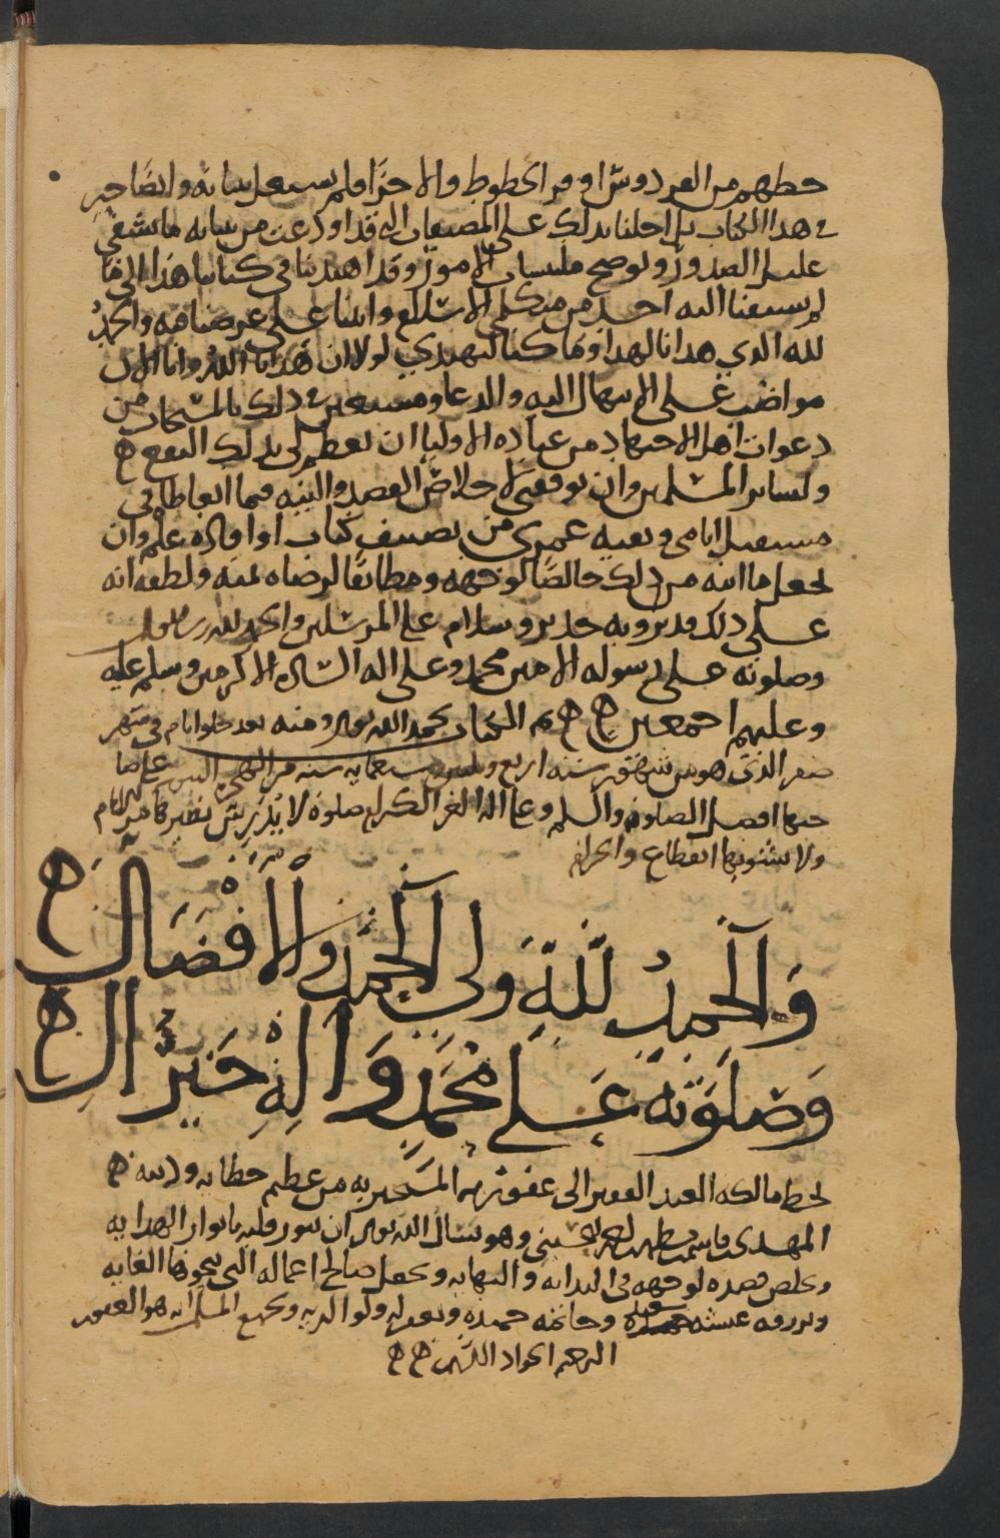 حطهم من الفردوس اوفر الحظوظ والاجزا فلم يستعمل بيانه وايضاحه
في هذا الكتاب بل احلنا بذلك على المصنفات التي قد اودعت من بيانه ما يشفي
عليل الصدور ويوضح ملتبسات الامور وقد اهتدينا في كتابنا هذا الى ما
لم يسبقنا اليه احد من متكلمي الاسلام واتينا على غرضنا فيه والحمد
لله الذي هدانا لهذا وما كنا لنهتدي لولا ان هدانا الله وانا الان
مواضب على الابتهال اليه والدعا ومستعين في ذلك بالمستجاب من
دعوات اهل الاجتهاد من عباده الاوليا ان يعظم لي بذلك النفع
ولساير المسلمين وان يوفقني لاخلاص القصد والنيه فيما اتعاطاه في
مستقبل ايامي وبقيه عمري من تصنيف كتاب او افادة علم وان
يجعل ما اتيته من ذلك خالصا لوجهه ومطابقا لرضاه بمنه ولطفه انه
على ذلك قدير وبه جدير وسلام على المرسلين والحمد لله رب العالمين
وصلوته على رسوله الامين محمد وعلى اله السادة الاكرمين وسلم عليه
وعليهم اجمعين تم الكتاب بحمد الله تعالى ومنه بعد خلو ايام في شهر
صفر الذي هو من شهور سنه اربع وثلثين سبعمايه سنه من الهجره النبويه على صا
حبها افضل الصلوة والسلم وعلى اله الغر الكرام صلوة لا
ولا يشوبها انقطاع وانخرام
والحمد لله ولي الحمد والافضال
وصلوته على محمد واله خير ال
بخط مالكه العبد الفقير الى عفو ربه المستجير به من عظيم خطاياه وذنبه
المهدي بن قاسم بن مطهر الحسني وهو يسال الله تعالى ان ينور قلبه بانوار الهدايه
ويخلص قصده لوجهه في البدايه والنهايه ويجعل صالح اعماله التي ينحوها الغايه
ويرزقه عيشه سعيدة وخاتمه حميده ويغفر له ولوالديه ولجميع المسلمين انه هو الغفور
الرحيم الجواد الكريم